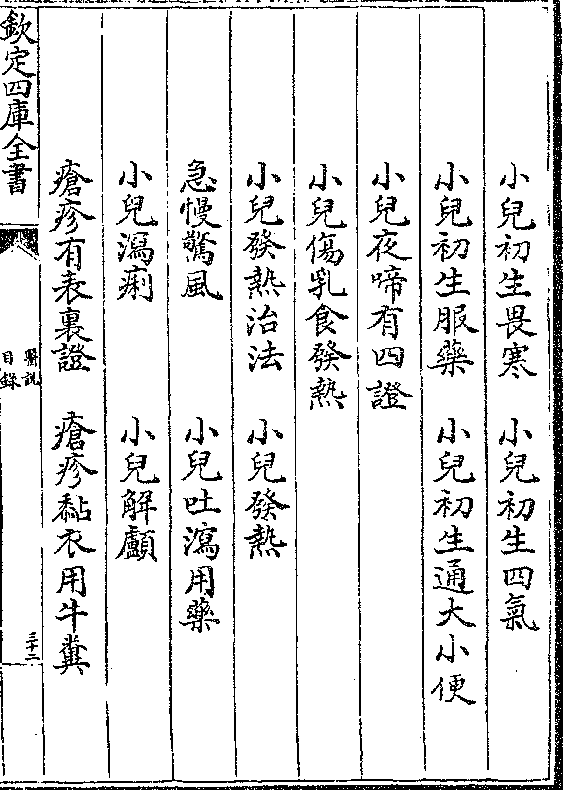 小兒初生畏寒　小兒初生四氣
小兒初生服藥　小兒初生通大小便
小兒夜啼有四證
小兒傷乳食發熱
小兒發熱治法　小兒發熱
急慢驚風　小兒吐瀉用藥
小兒瀉痢　小兒解顱
瘡疹有表裏證　瘡疹黏衣用牛糞
欽定四庫全書
醫說
目錄
三十二